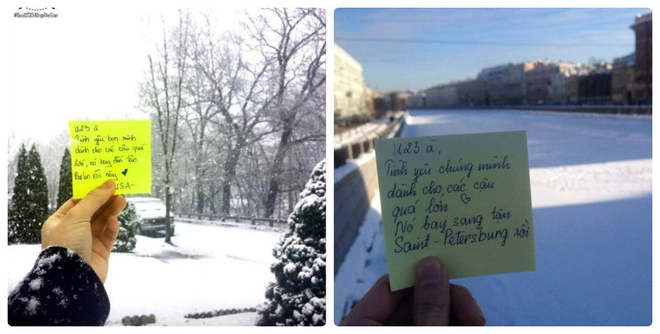 U23 à
Tình yêu bọn mình
dành cho các cậu quá
lớn, nó bay đến tận
Berlin rồi này
USA-
U23 à,
Tình yêu chúng mình
dành cho các cậu
quá lớn
Nó bay sang tận
Saint-Petersburg rồi